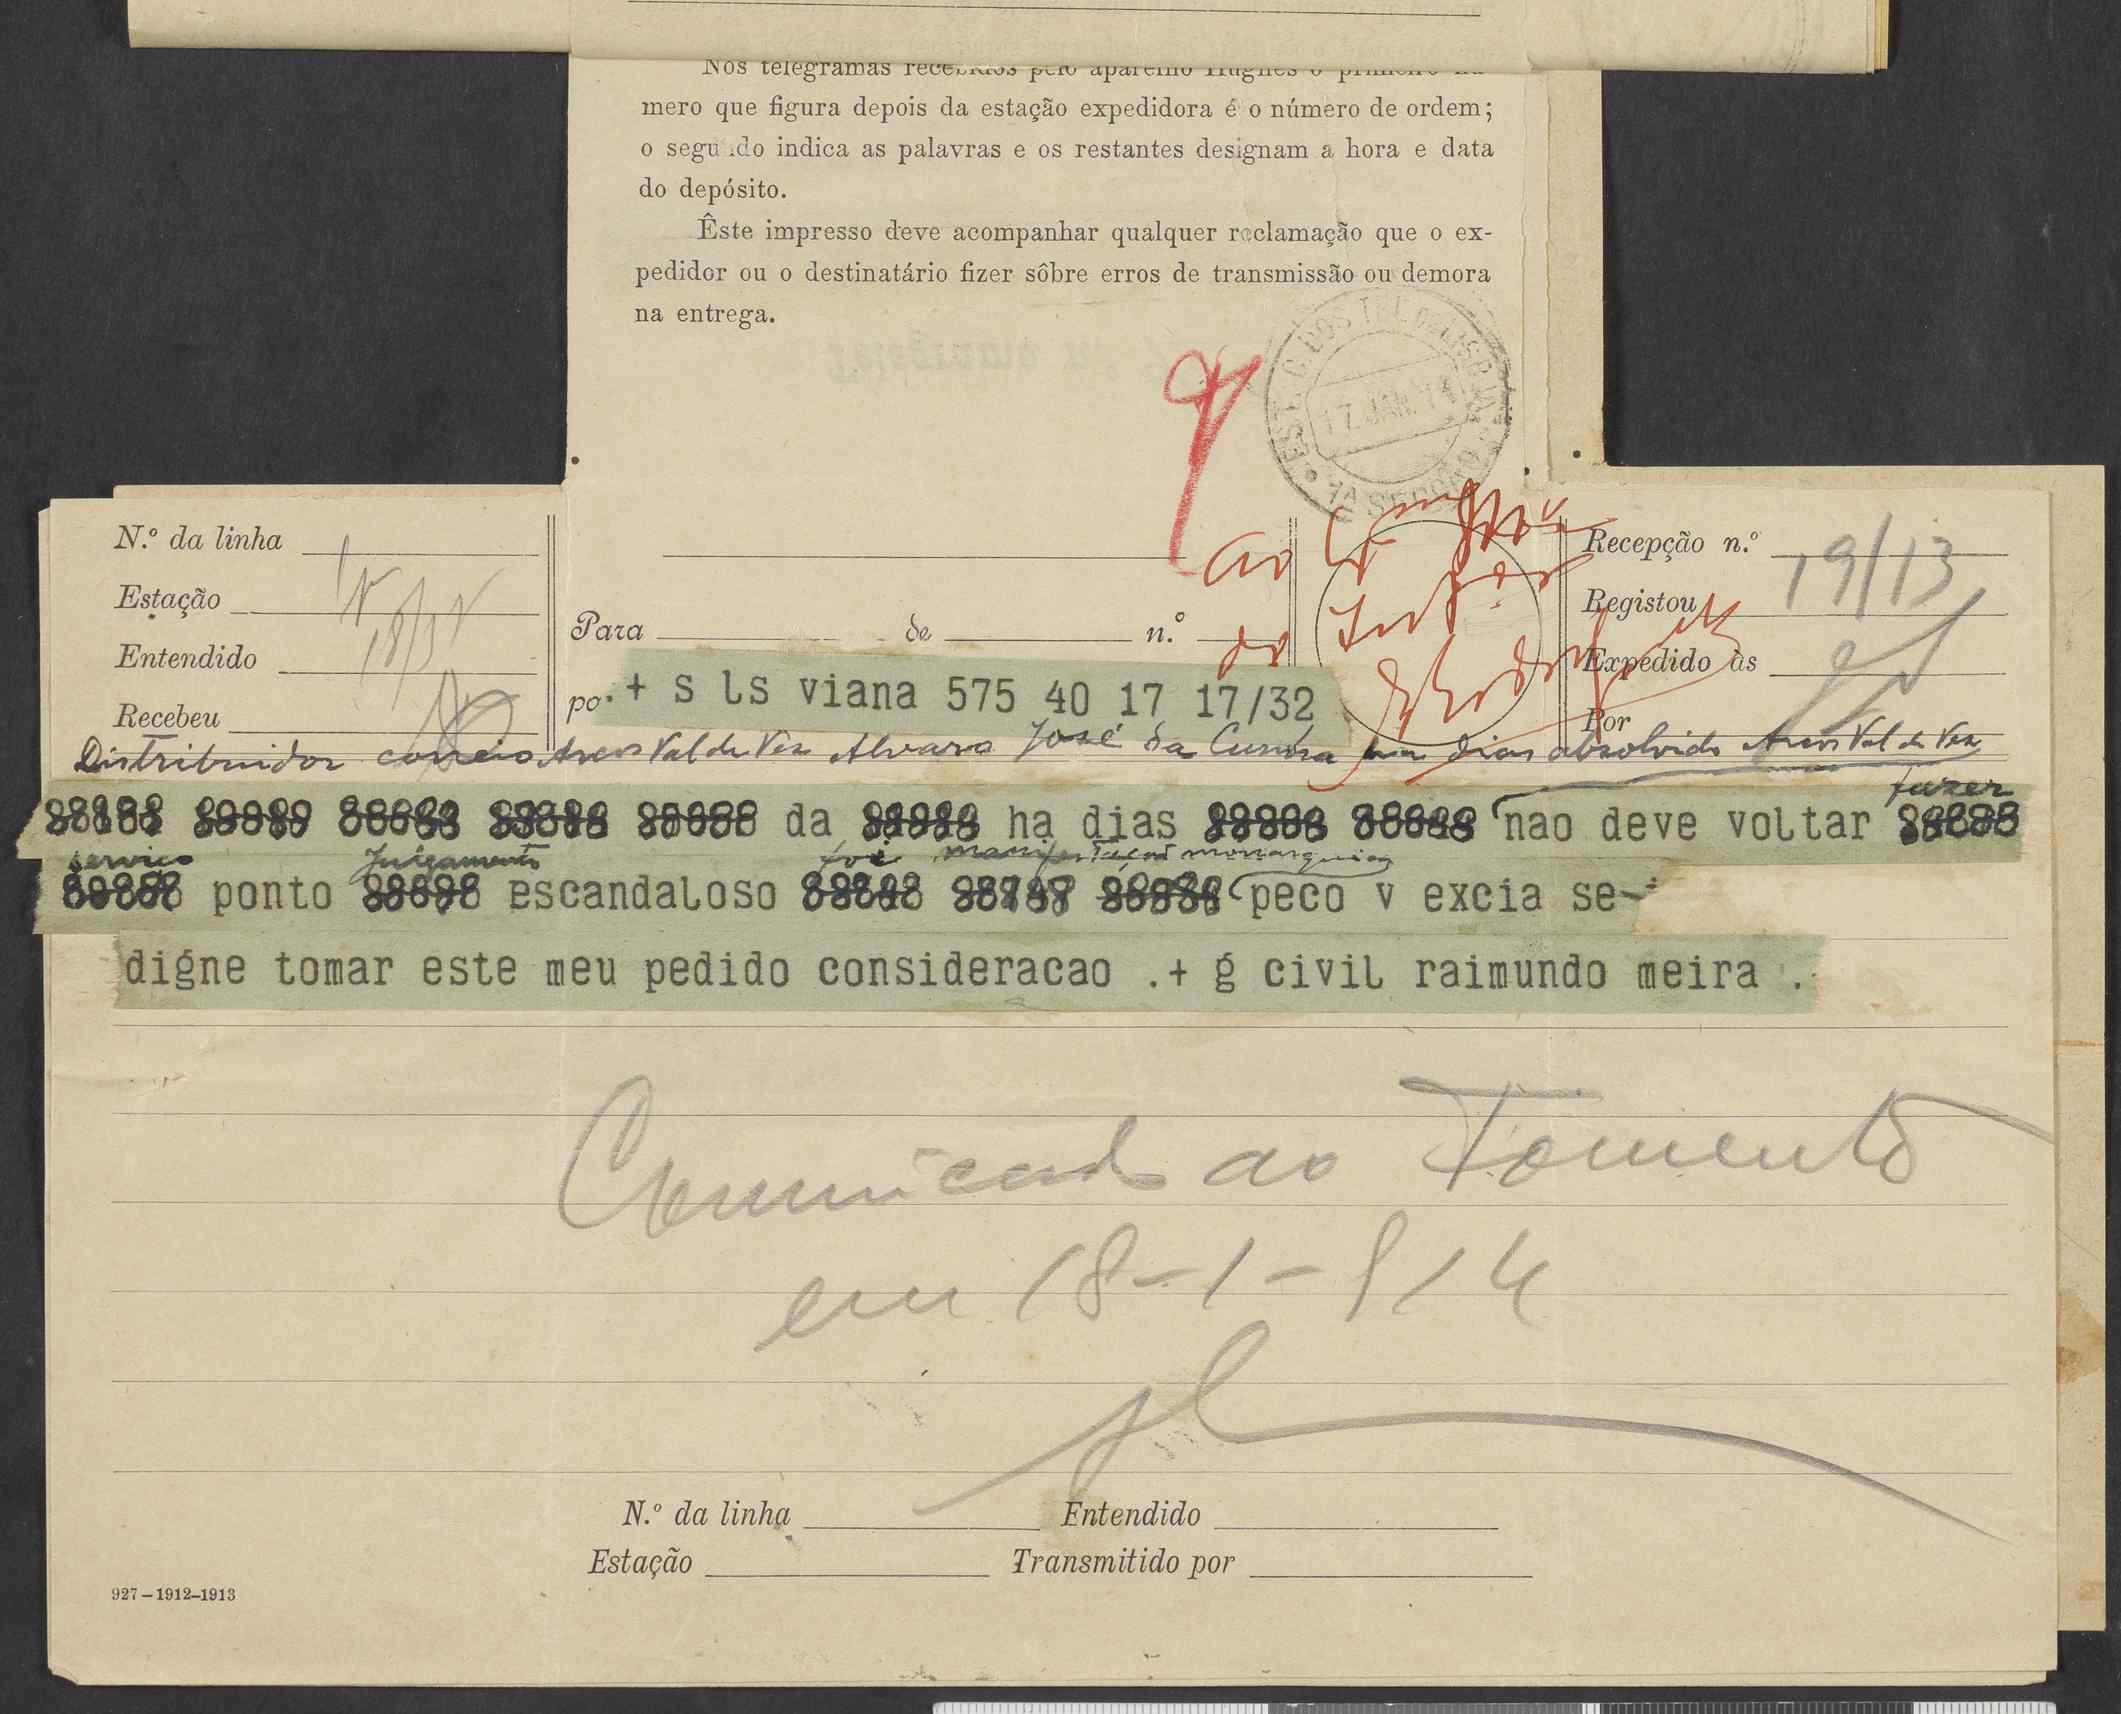 Nos telegramas recebidos pelo aparelho Hughes o primeiro nú-
mero que figura depois da estação expedidora é o número de ordem;
o segundo indica as palavras e os restantes designam a hora e data
do depósito.
Êste impresso deve acompanhar qualquer reclamação que o ex-
pedidor ou o destinatário fizer sôbre erros de transmissão ou demora
na entrega.
17 JAN. 14
N.º da linha
Estação
Entendido 18/1
Recebeu
Para de n.º
Ao
do
Recepção n.º 19/13
Registou
Expedido às
Por
po .+ s ls viana 575 40 17 17/32
Distribuidor correio Arcos Val de Vez Alvaro José da Cunha ha dias absolvido Arcos Val de Vez
fazer
da ha dias nao deve voltar
serviço julgamento foi manifestação monarquica
ponto escandaloso peco v excia se-
digne tomar este meu pedido consideracao .+ g civil raimundo meira .
Comunicado ao Fomento
em 18-1-914
N.º da linha Entendido
Estação Transmitido por
927–1912–1913